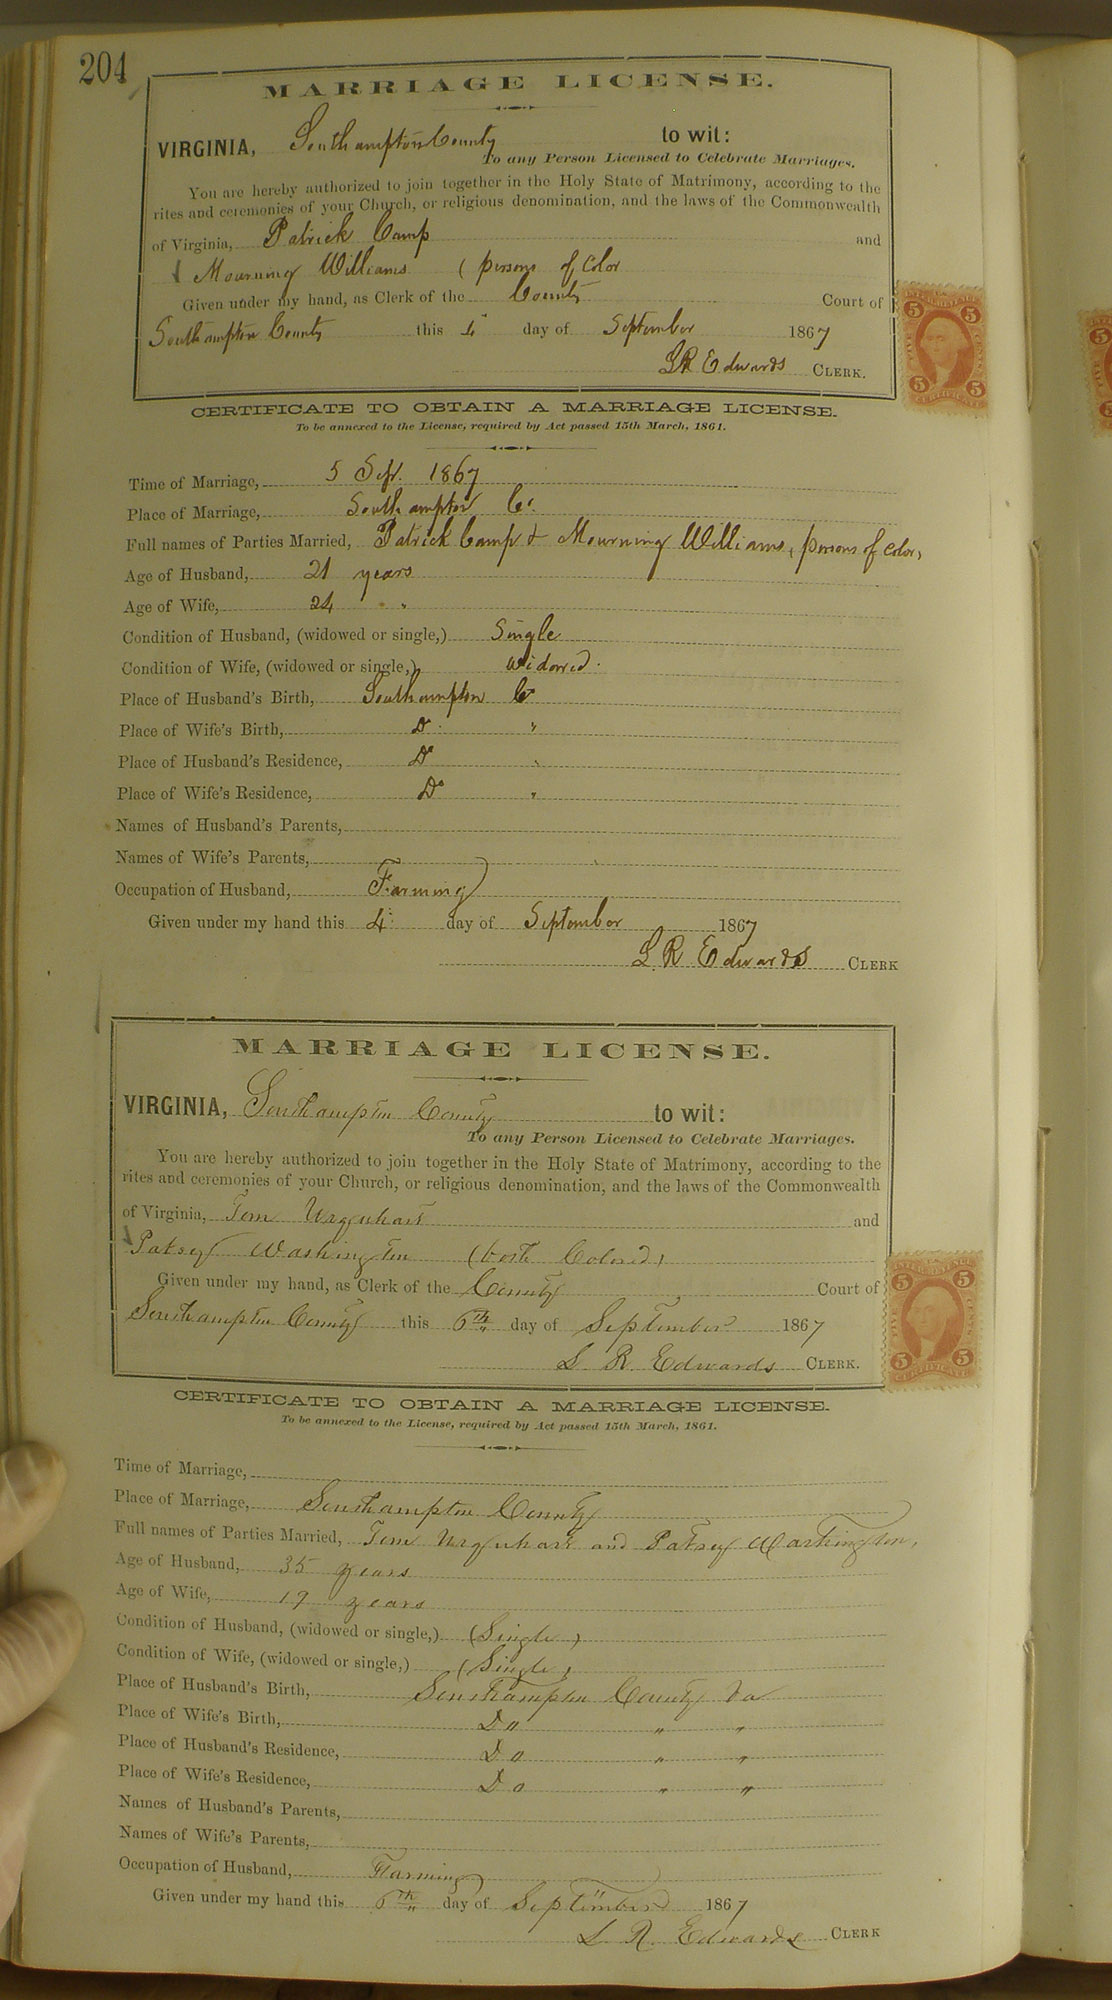 204
MARRIAGE LICENSE.
VIRGINIA, Southampton County to wit:
To any Person Licensed to Celebrate Marriages.
You are hereby authorized to join together in the Holy State of Matrimony, according to the
rites and ceremonies of your Church, or religious denomination, and the laws of the Commonwealth
of Virginia, Patrick Camp and
Mourning Williams ( persons of Color
Given under my hand, as Clerk of the County Court of
Southampton County this 4 day of September 1867
LR Edwards CLERK.
CERTIFICATE TO OBTAIN A MARRIAGE LICENSE.
To be annexed to the License, required by Act passed 15th March, 1861.
Time of Marriage, 5 Sept. 1867
Place of Marriage, Southampton Co.
Full names of Parties Married, Patrick Camp & Mourning Williams, persons of color,
Age of Husband, 21 years
Age of Wife, 24 "
Condition of Husband, (widowed or single,) Single
Condition of Wife, (widowed or single,) widowed.
Place of Husband's Birth, Southampton Co
Place of Wife's Birth, Do "
Place of Husband's Residence, Do "
Place of Wife's Residence, Do "
Names of Husband's Parents,
Names of Wife's Parents,
Occupation of Husband, Farming
Given under my hand this 4 day of September 1867
L.R. Edwards CLERK
MARRIAGE LICENSE.
VIRGINIA, Southampton County to wit:
To any Person Licensed to Celebrate Marriages.
You are hereby authorized to join together in the Holy State of Matrimony, according to the
rites and ceremonies of your Church, or religious denomination, and the laws of the Commonwealth
of Virginia, Tom Urquhart and
Patsey Washington (both Colored)
Given under my hand, as Clerk of the County Court of
Southampton County this 6th day of September 1867
L R. Edwards CLERK.
CERTIFICATE TO OBTAIN A MARRIAGE LICENSE.
To be annexed to the License, required by Act passed 15th March, 1861.
Time of Marriage,
Place of Marriage, Southampton County
Full names of Parties Married, Tom Urquhart and Patsey Washington,
Age of Husband, 35 years
Age of Wife, 19 years
Condition of Husband, (widowed or single,) (Single)
Condition of Wife, (widowed or single,) (Single)
Place of Husband's Birth, Southampton County Va
Place of Wife's Birth, Do " "
Place of Husband's Residence, Do " "
Place of Wife's Residence, Do " "
Names of Husband's Parents,
Names of Wife's Parents,
Occupation of Husband, Farming
Given under my hand this 6th day of September 1867
L R. Edwards CLERK